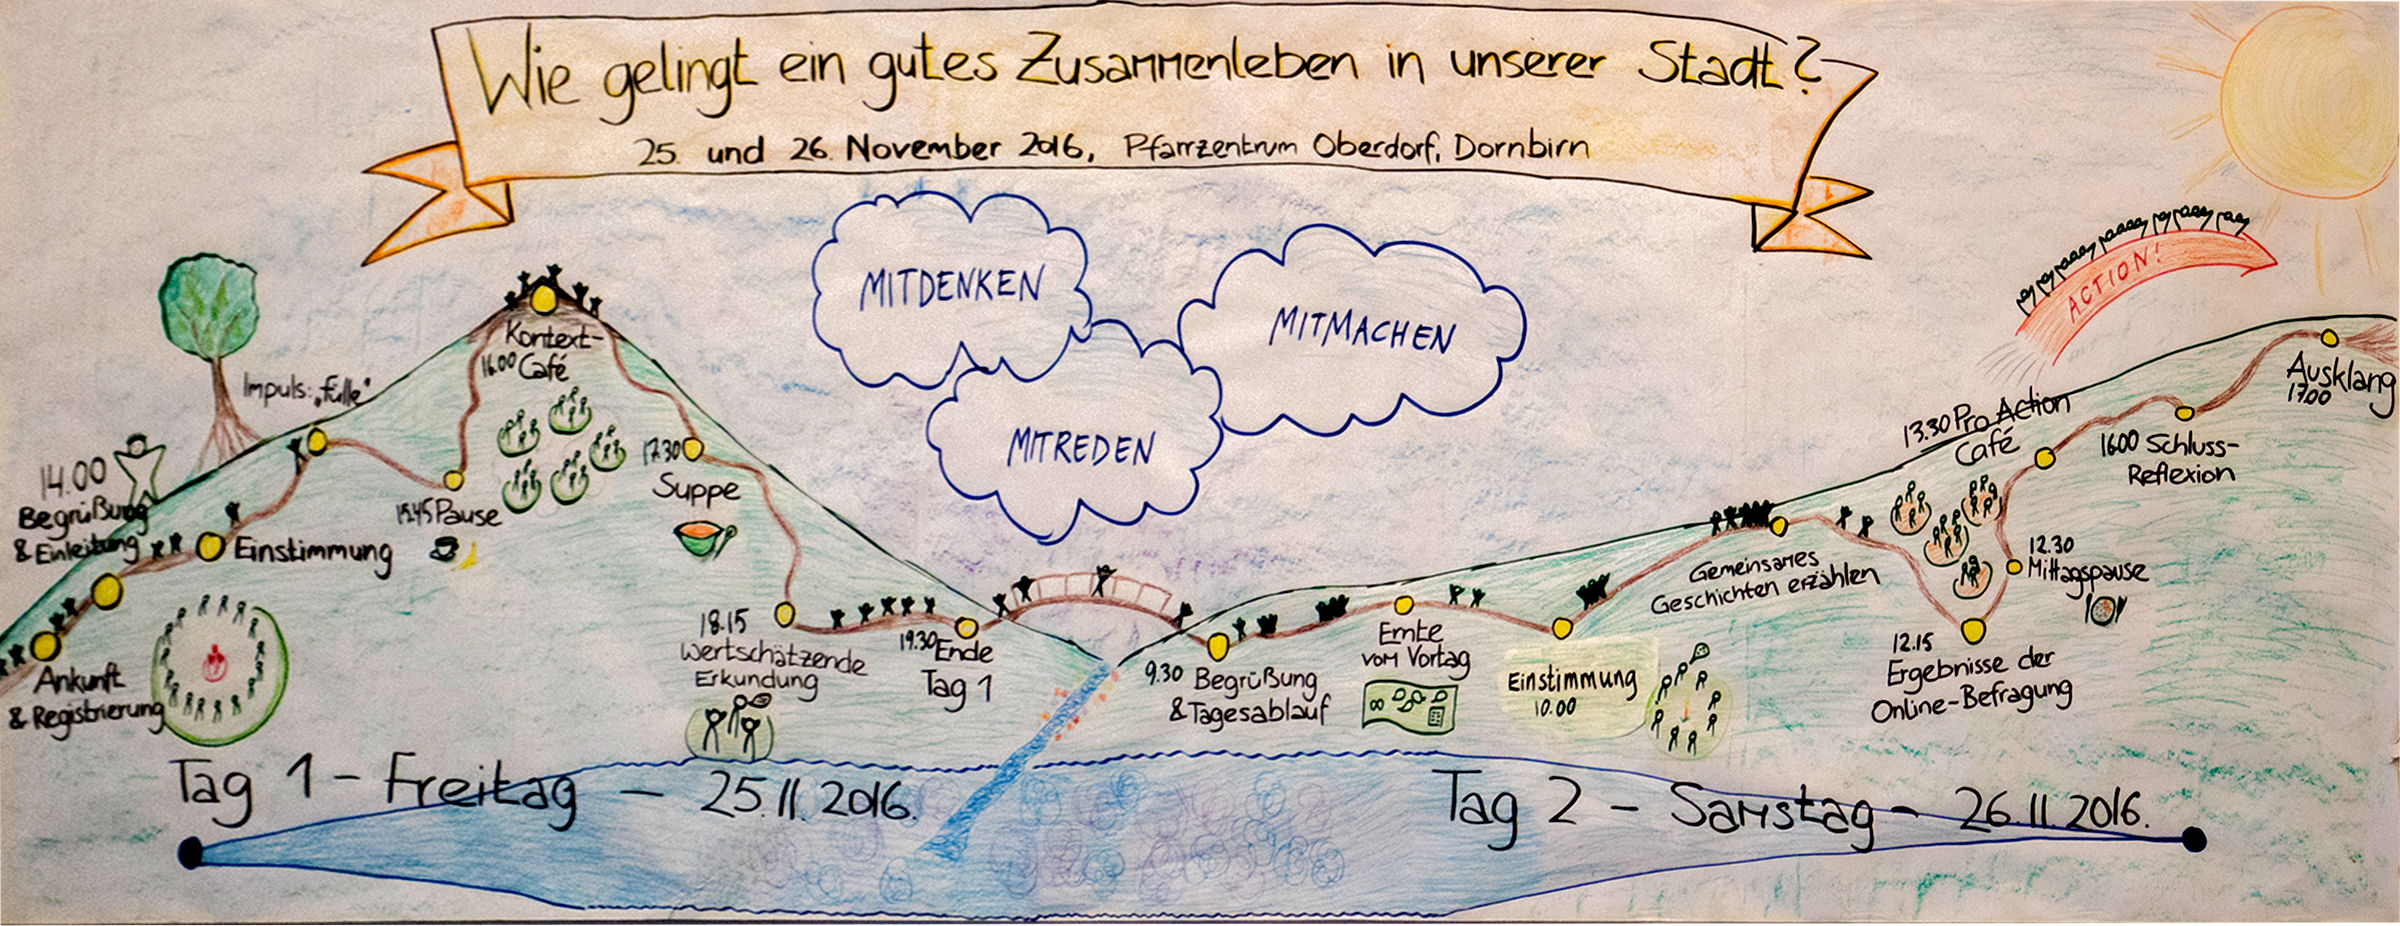 Wie gelingt ein gutes Zusammenleben in unserer Stadt?
25. und 26. November 2016, Pfarrzentrum Oberdorf, Dornbirn
MITDENKEN
MITMACHEN
MITREDEN
ACTION!
Ankunft
& Registrierung
14.00
Begrüßung
& Einleitung
Einstimmung
Impuls: „Fülle"
15.45 Pause
Kontext-
16.00 Café
17.30
Suppe
18.15
Wertschätzende
Erkundung
19.30 Ende
Tag 1
9.30 Begrüßung
& Tagesablauf
Ernte
vom Vortag
Einstimmung
10.00
Gemeinsames
Geschichten erzählen
12.15
Ergebnisse der
Online-Befragung
12.30
Mittagspause
13.30 Pro Action
Café
16.00 Schluss-
Reflexion
Ausklang
17.00
Tag 1 - Freitag - 25.11.2016.
Tag 2 - Samstag - 26.11.2016.